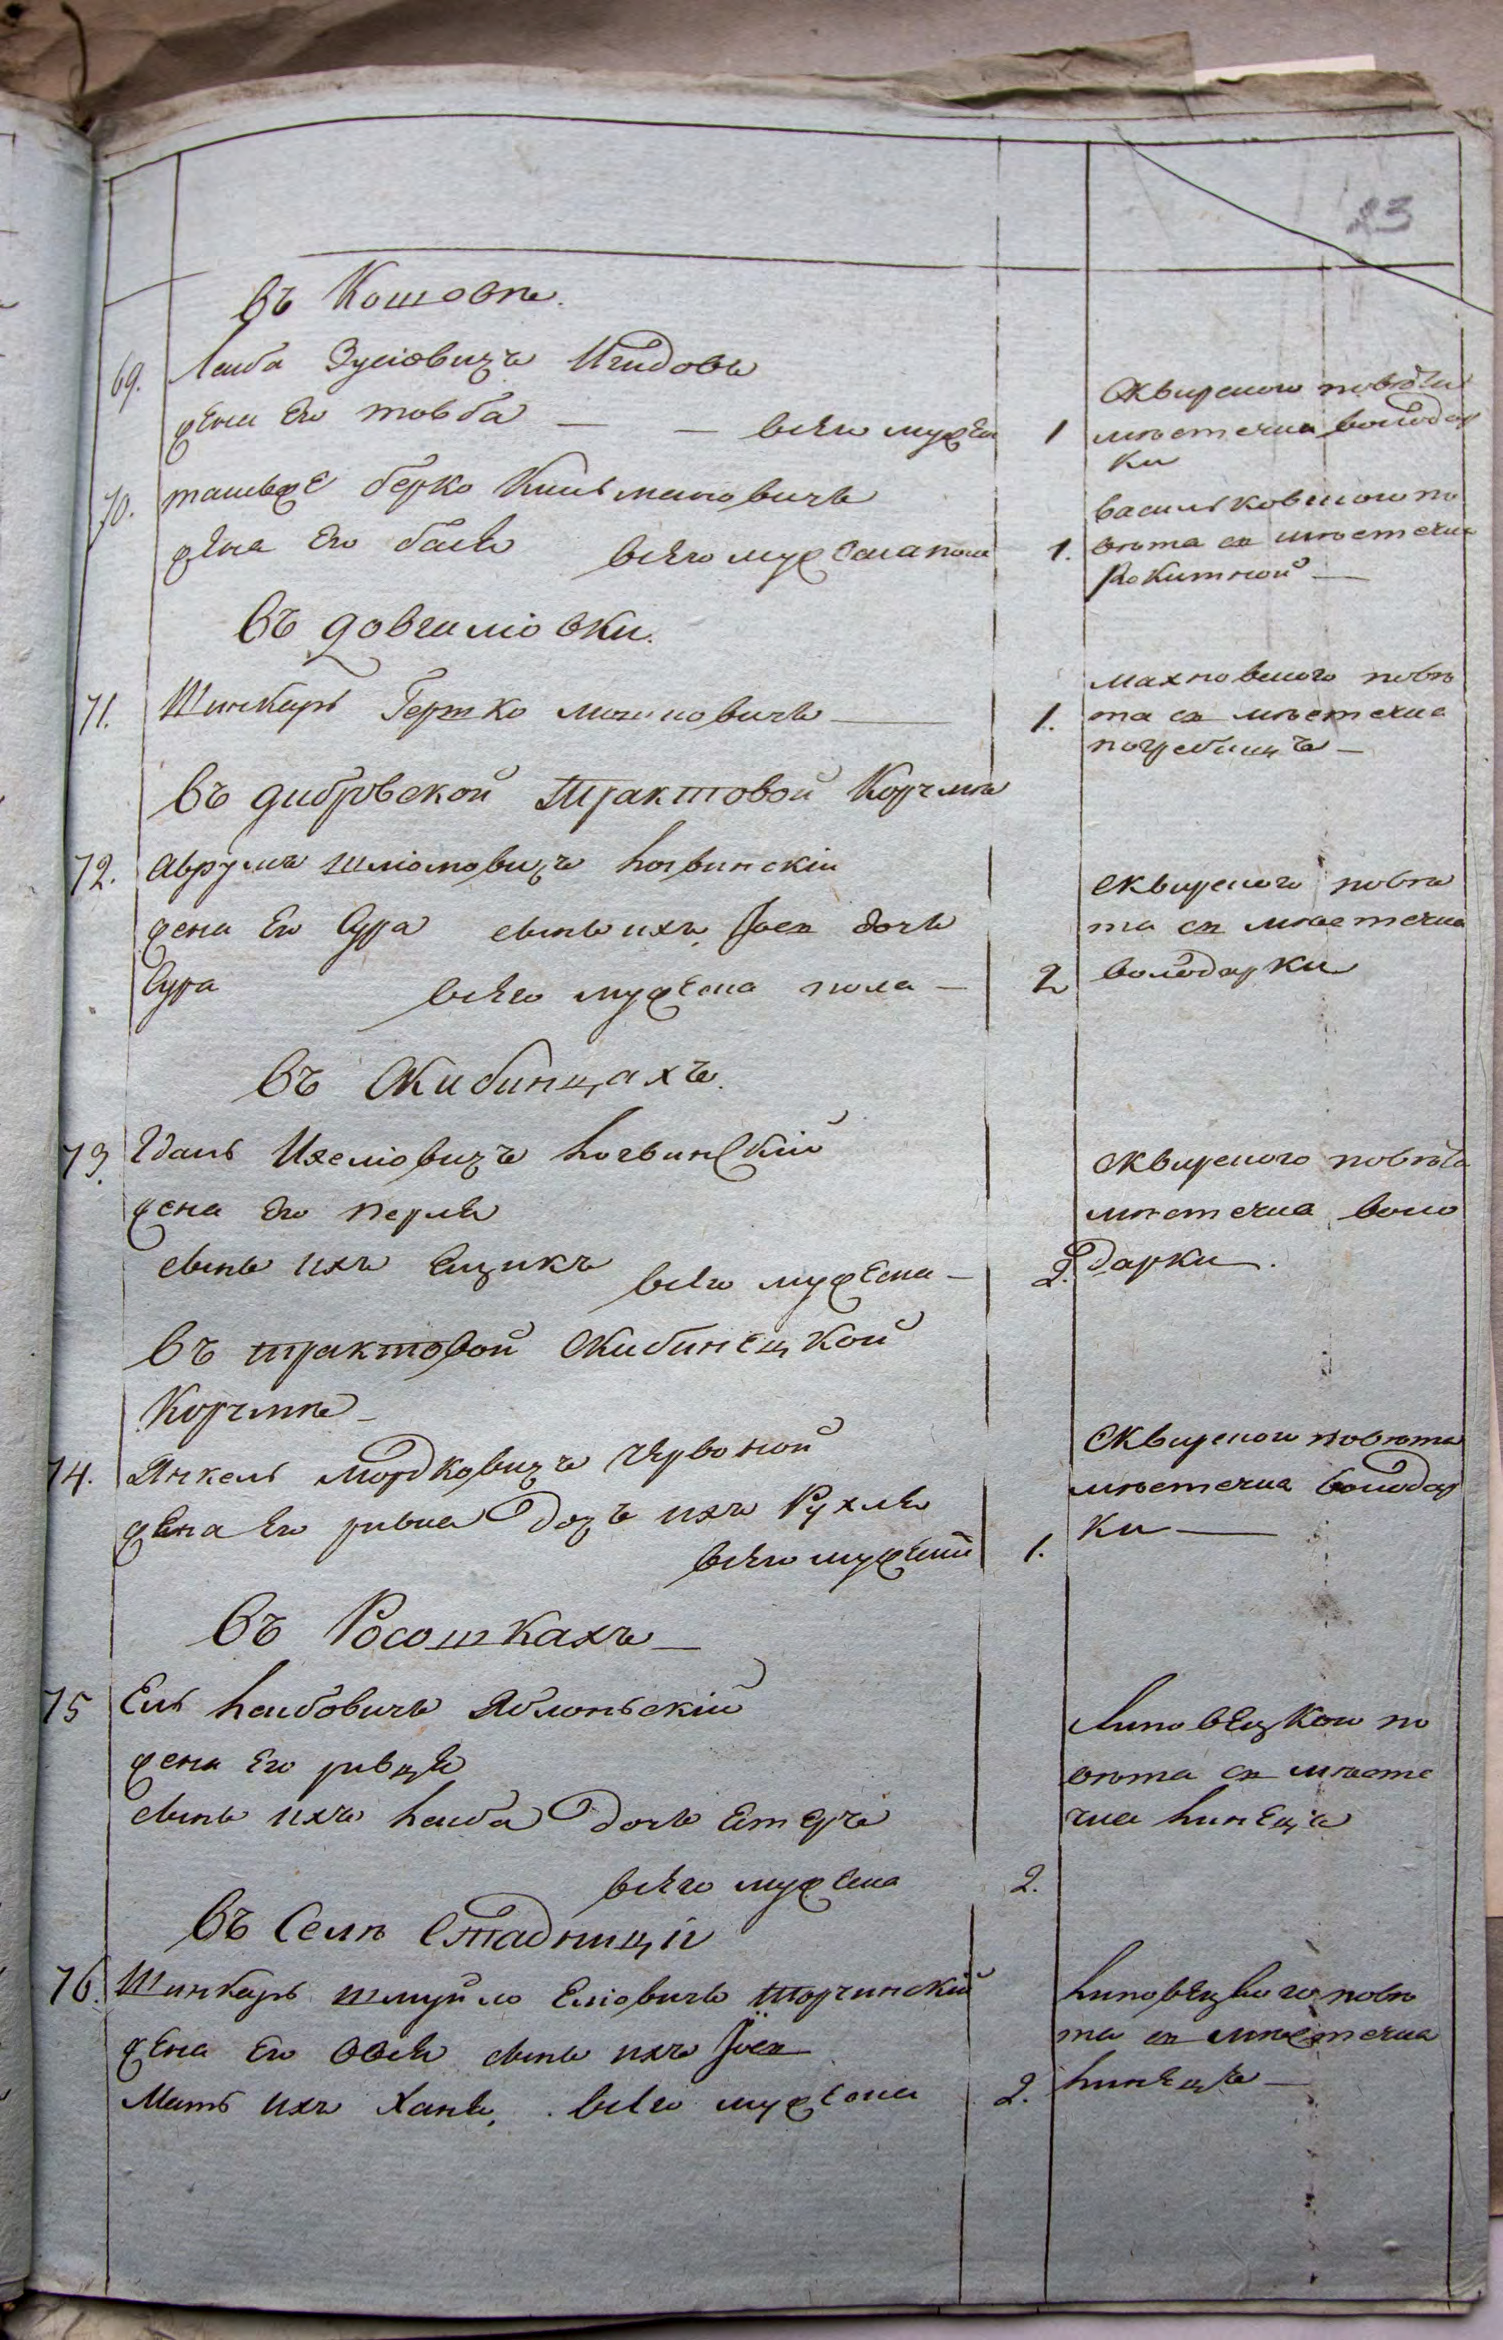 23
въ Кошовѣ.
69. Лейба Зусіовичъ Жидовъ
жена Его товба — — всего мужеска 1
Сквирского повѣта
мѣстечка володар
ки
70. тамъже берко Кельмановичъ
жена Его бася всего мужеска пола 1.
васильковского по
вѣта из мѣстечка
Рокитной —
въ довгаліовки.
71. Шинкарь Гершко — 1.
махновского повѣ
та из мѣстечка
погребищъ —
въ дибровской трактовой Корчмѣ
72. Аврумъ шліомовичъ Логвинскій
жена Его Сура сынъ ихъ Іось дочь
Сура всего мужеска пола — 2
сквирского повѣ
та из мѣстечка
володарки
въ Скибинцахъ.
73. Идаль Ихеліовичъ Логвинскій
жена Его перля
сынъ ихъ Ецикъ всего мужеска — 2.
сквирского повѣта
мѣстечка воло
дарки.
въ трактовой Скибинецкой
Корчмѣ —
74. Янкель Мордковичъ Червоной
жена Его ривка дочъ ихъ Рухля
всего мужеской 1.
Сквирского повѣта
мѣстечка володар
ки —
въ Росошкахъ —
75 Ель Лейбовичъ Яблонскій
жена Его ривця
сынъ ихъ Лейба дочь Етеръ
всего мужеска 2.
Липовецкого по
вѣта из мѣсте
чка Линецъ
въ Селѣ Стадници
76. Шинкарь шмуйло Еліовичъ Торчинскій
жена Его Бася сынъ ихъ Іось
Мать ихъ Хана, всего мужеска 2.
Липовецкого повѣ
та из мѣстечка
Линецъ —